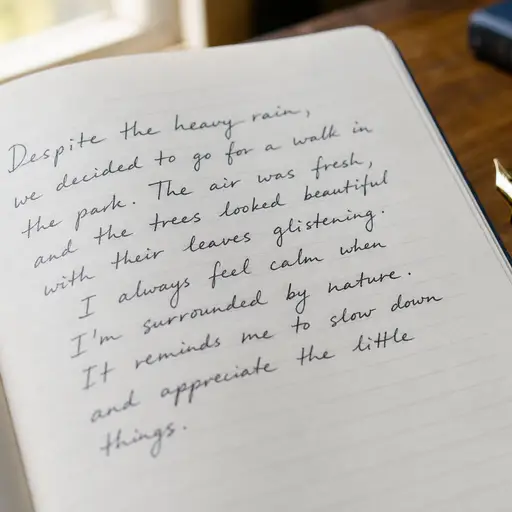 Despite the heavy rain,
we decided to go for a walk in
the park. The air was fresh,
and the trees looked beautiful
with their leaves glistening.
I always feel calm when
I'm surrounded by nature.
It reminds me to slow down
and appreciate the little
things.